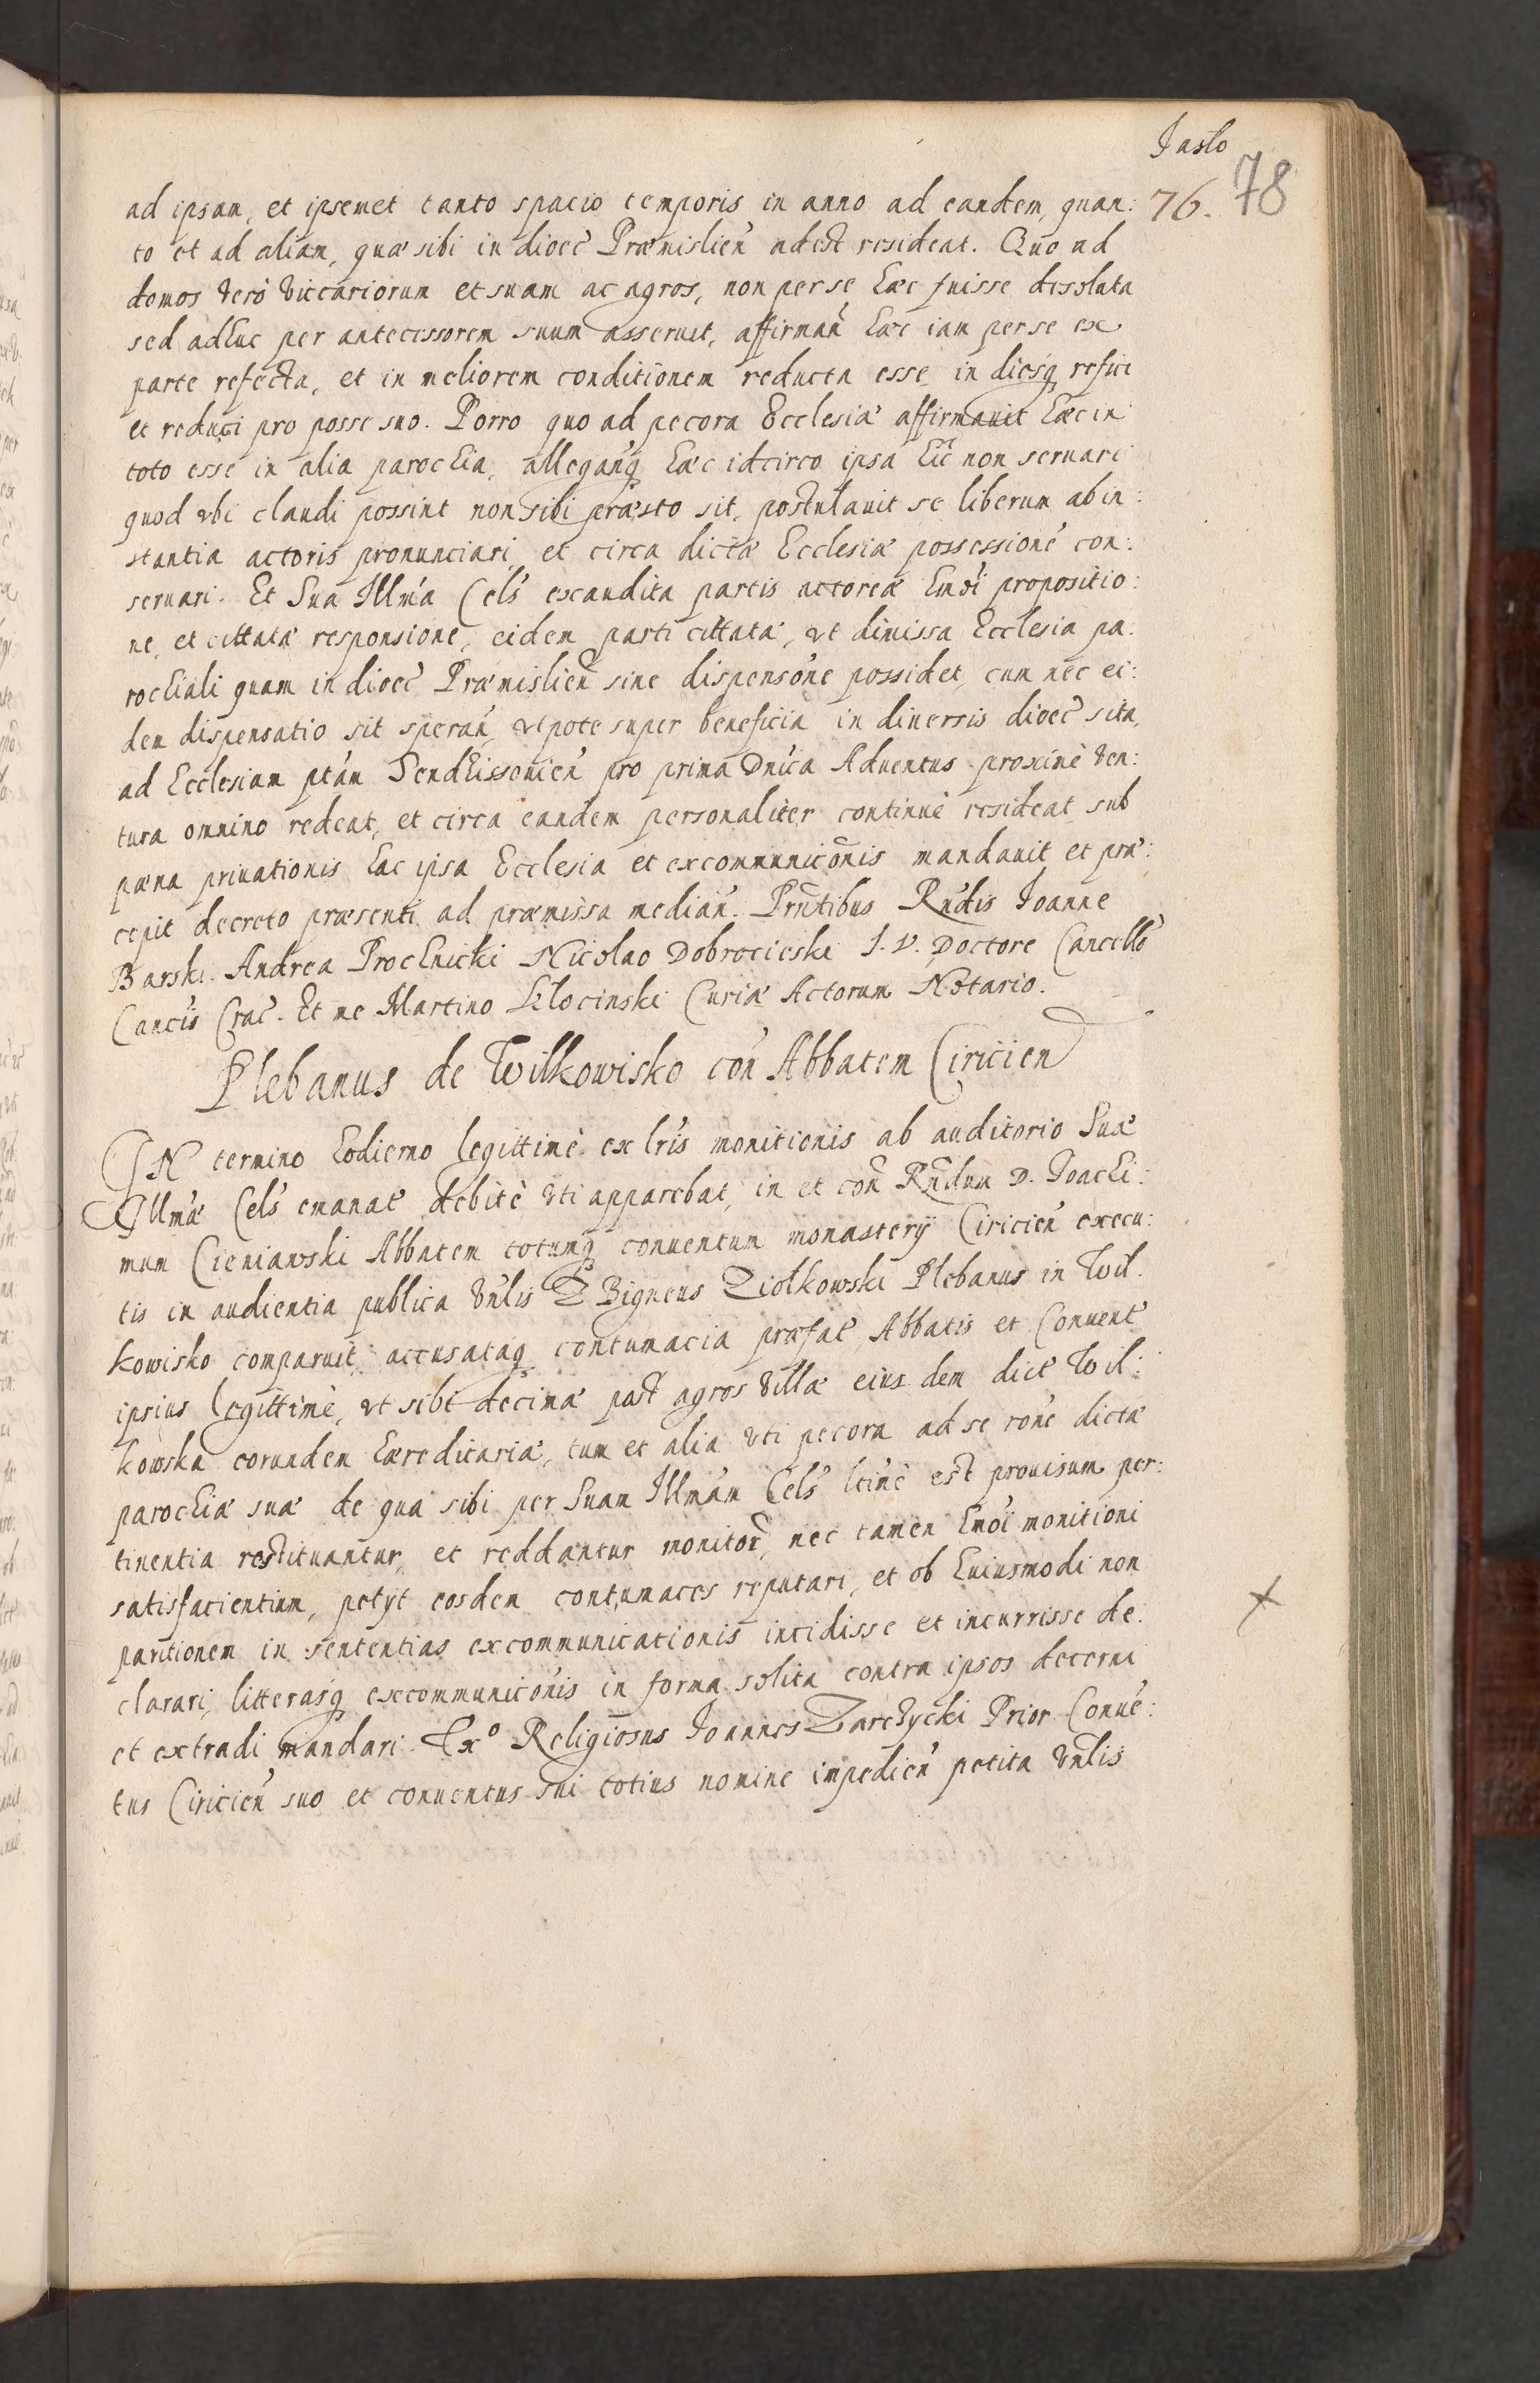 Jaslo
76. 78
ad ipsam, et ipsemet tanto spacio temporis in anno ad eandem, quan:
to et ad aliam, quæ sibi in dioec̃ Præmislien̄ adest resideat. Quo ad
domos verò viccariorum et suam ac agros, non per se hæc fuisse desolata
sed adhuc per antecessorem suum asseruit, affirman̄ hæc iam per se ex
parte refecta, et in meliorem conditionem reducta esse, in diesq̃ refici
et reduci pro posse suo. Porro quo ad pecora Ecclesiæ affirmauit hæc in
toto esse in alia parochia, allegan̄q̃ hæc idcirco ipsa hic̄ non seruari
quod vbi claudi possint non sibi præsto sit, postulauit se liberum ab in:
stantia actoris pronunciari, et circa dictæ Ecclesiæ possessione̅ con:
seruari. Et Sua Illm̄a Cels̄ exaudita partis actoreæ hmōi propositio:
ne, et cittatæ responsione, eidem parti cittatæ, vt dimissa Ecclesia pa:
rochiali quam in dioec̃ Præmislien̄ sine dispensōne possidet, cum nec ei:
dem dispensatio sit speran̄, vtpote super beneficia in diuersis dioec̃ sita,
ad Ecclesiam ptām Sendhissouien̄ pro prima Dnīca Aduentus proximè ven:
tura omnino redeat, et circa eandem personaliter continuè resideat sub
pæna priuationis hac ipsa Ecclesia et excommunicōnis mandauit et præ:
cepit decreto præsenti ad præmissa median̄. Prn̄tibus Rn̄dis Joanne
Barski. Andrea Prochnicki Nicolao Dobrocieski I. V. Doctore Cancellō
Cancis̄ Crac̄. Et me Martino Klocinski Curiæ Actorum Notario.
Plebanus de Wilkowisko con̄ Abbatem Ciricien
IN termino hodierno legittimè ex lrīs monitionis ab auditorio Suæ
Illmǣ Cels̄ emanat̄ debitè vti apparebat, in et con̄ Rn̄dum D. Joachi:
mum Cieniawski Abbatem totumq̃ conuentum monasterÿ Ciricien̄ execu:
tis in audientia publica vn̄lis Z Bigneus Ziołkowski Plebanus in Wil:
kowisko comparuit, accusataq̃ contumacia præfat̄ Abbatis et Conuent̄
ipsius legittimè, vt sibi decimæ post agros villæ eius dem dict̄ Wil:
kowska eorundem hæreditariæ, tum et alia vti pecora ad se ron̄e dictæ
parochiæ suæ de qua sibi per Suam Illmām Cels̄ ltimè est prouisum per:
tinentia restituantur, et reddantur monitor̄, nec tamen hmōi monitioni
satisfacientium, petÿt eosdem contumaces reputari, et ob huiusmodi non
paritionem in sententias excommunicationis incidisse et incurrisse de:
clarari, litterasq̃ excommunicōnis in forma solita contra ipsos decerni
et extradi mandari. Exº Religiosus Joannes Zarczycki Prior Conue̅:
tus Ciricien̄ suo et conuentus sui totius nomine impedien̄ petita vn̄lis